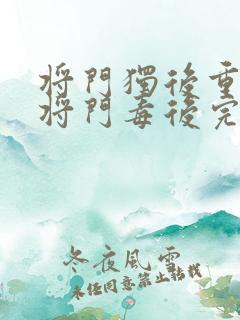 將門獨後重
將門毒後完
冬夜風雪
未經同意禁止轉載